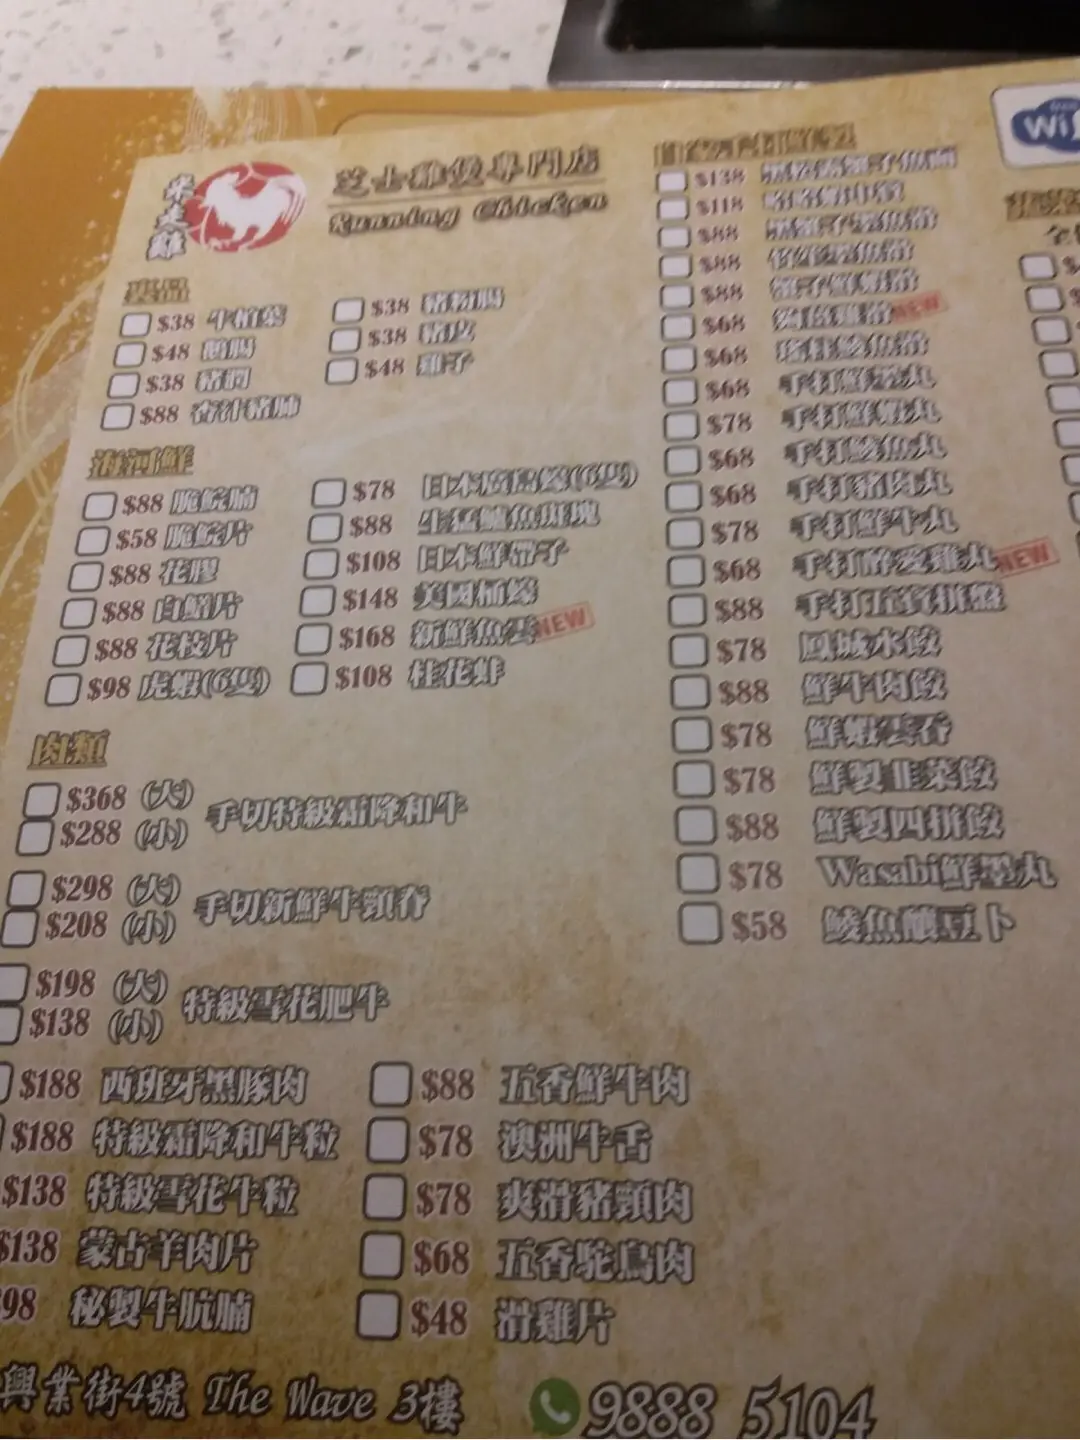 芝士雞煲專門店
Running Chicken
WiF
$38 牛柏葉
$48 鵝腸
$38 豬潤
$88 杏汁豬肺
$38 豬粉腸
$38 豬皮
$48 雞子
海河鮮
$88 脆鯇腩
$58 脆鯇片
$88 花膠
$88 白鱔片
$88 花枝片
$98 虎蝦(6隻)
$78 日本廣島蠔(6隻)
$88 生猛鱸魚斑塊
$108 日本鮮帶子
$148 美國桶蠔
$168 新鮮魚雲 NEW
$108 桂花蚌
肉類
$368 (大)
$288 (小)
手切特級霜降和牛
$298 (大)
$208 (小)
手切新鮮牛頸脊
$198 (大)
$138 (小)
特級雪花肥牛
$188 西班牙黑豚肉
$188 特級霜降和牛粒
$138 特級雪花牛粒
$138 蒙古羊肉片
98 秘製牛肮腩
$88 五香鮮牛肉
$78 澳洲牛舌
$78 爽滑豬頸肉
$68 五香駝鳥肉
$48 滑雞片
$138
$118
$88
$88
$88
$68 NEW
$68
$68 手打鮮墨丸
$78 手打鮮蝦丸
$68 手打鯪魚丸
$68 手打豬肉丸
$78 手打鮮牛丸
$68 手打醉愛雞丸 NEW
$88 手打五寶拼盤
$78 鳳城水餃
$88 鮮牛肉餃
$78 鮮蝦雲吞
$78 鮮製韭菜餃
$88 鮮製四拼餃
$78 Wasabi鮮墨丸
$58 鯪魚釀豆卜
興業街4號 The Wave 3樓
9888 5104